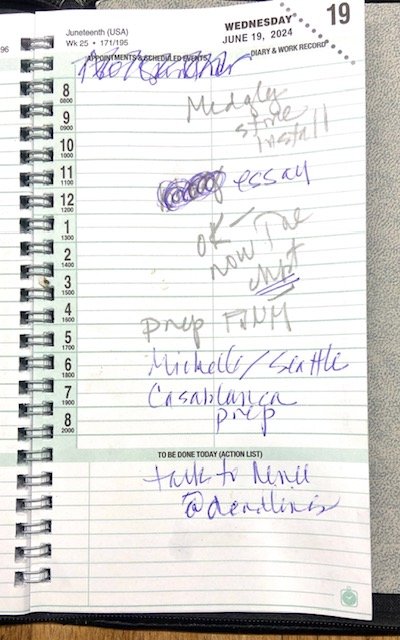 Juneteenth (USA)
Wk 25 • 171/195
WEDNESDAY
JUNE 19, 2024
19
96
APPOINTMENTS & SCHEDULED EVENTS
DIARY & WORK RECORD
8
0800
9
0900
stone
install
10
1000
11
1100
essay
12
1200
1
1300
OK
now The
2
1400
3
1500
4
1600
prep
5
1700
6
1800
Michelle/Seattle
7
1900
Casablanca
prep
8
2000
TO BE DONE TODAY (ACTION LIST)
talk to
@deadlines